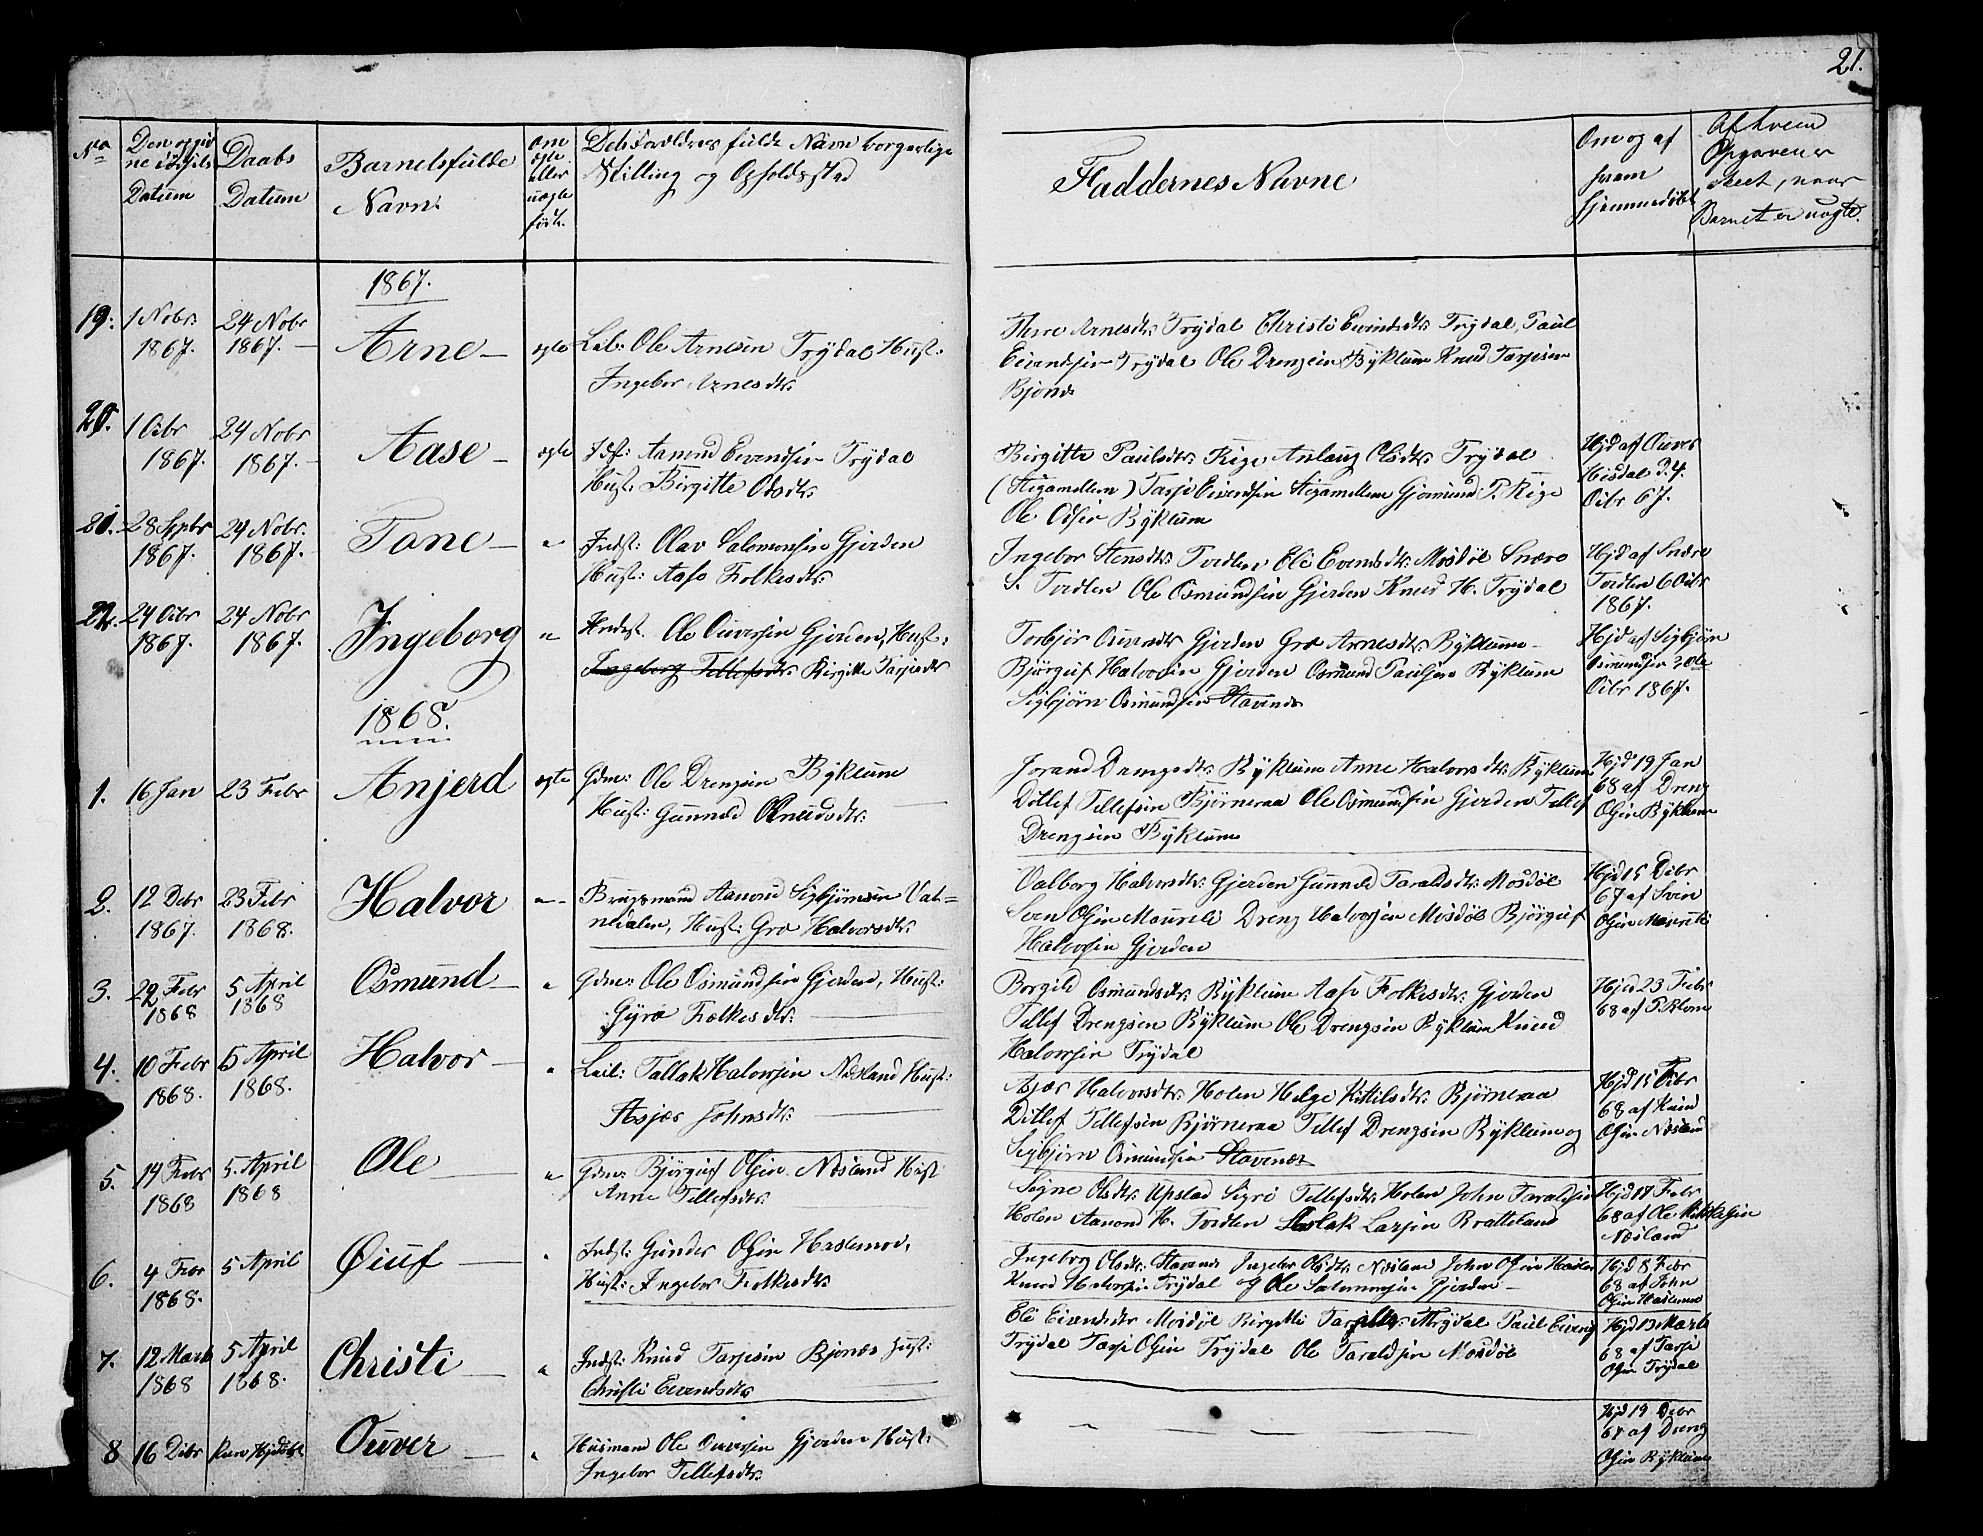 21.
No
Den opgivne Fødsels Datum
Daabs Datum
Barnets fulde Navn.
Om ægte eller uægte født.
Det Forældres fulde Navn borgerlige Stilling og Opholdsstad
Faddernes Navne
Om og af hvem hjemmedøbt
Af hvem Opgaven er skeet, naar Barnet er uægte.
1867.
19. 1 Nobr 1867. 24 Nobr 1867. — Arne — ægte Leil: Ole Arnesen Trydal Hust:
Ingebor Arnesdtr.
Arnesdtr. Trydal Christi Eivindsdtr. Trydal, Paul
Eivendsen Trydal Ole Drengsen Byklum Knud Tarjesen
Bjones
20. 1 Oibr 1867. 24 Nobr 1867. — Aase — ægte Indst: Aanund Eivendsen Trydal
Hust. Birgitte Olsdtr.
Birgitte Paulsdtr. Rige Anlaug Olsdtr. Trydal
(Stigamellem) Tarje Eivendsen Stigamellem Gjermund P. Rige
Ole Olsen Byklum
Hjd af Ouver
Hisdal d. 4
Oibr 67.
21. 28 Sepbr 1867. 24 Nobr. 1867. — Tone — " Indst: Olav Salomonsen Gjerden
Hust: Aase Folkesdtr.
Ingebor Stensdtr. Tvedten Eli Evensdtr. Mosdøl Snære
S. Tvedten Ole Osmundsen Gjerden Knud H. Trydal
Hjd af Snære
Tvedten 6 Oibr
1867.
22. 24 Oibr 1867. 24 Nobr 1867. Ingeborg " Indst. Ole Ouversen Gjerden, Hust:
Ingeborg Tellefsdtr. Birgitte Tarjesdtr
Torbjør Ouversdtr Gjerden Gro Arnesdtr. Byklum
Bjørguf Halvorsen Gjerden Osmund Paulsen Byklum
Sigbjørn Osmundsen Stavenes
Hjd af Sigbjørn
Osmundsen 30te
Oibr 1867.
1868.
1. 16 Jan 23 Febr Anjerd ægte Gdm: Ole Drengsen Byklum
Hust: Gunneld Knudsdtr.
Jorand Drengsdtr. Byklum Anne Halvorsdtr. Byklum
Ditlef Tellefsen Bjørneraa Ole Osmundsen Gjerden Tellef
Drengsen Byklum
Hjd 19 Jan
68 af Dreng
Olsen Byklum
2. 12 Debr 1867. 23 Febr 1868. Halvor " Brugsmand Aanund Sigbjørnsen Vat-
nedalen, Hust: Gro Halvorsdtr.
Valborg Halvorsdtr. Gjerden Gunneld Taraldsdtr. Mosdøl
Sven Olsen Maureli Dreng Halvorsen Mosdøl Bjørguf
Halvorsen Gjerden
Hjd 15 Debr
67 af Sven
Olsen Maureli
3. 22 Febr 1868 5 April 1868 Osmund — " Gdm: Ole Osmundsen Gjerden, Hust:
Gyro Folkesdtr.
Borgild Osmundsdtr. Byklum Aase Folkesdtr. Gjerden
Tellef Drengsen Byklum Ole Drengsen Byklum Knud
Halvorsen Trydal
Hjd 23 Febr
68 af P. Blom
4. 10 Febr 1868. 5 April 1868. Halvor — " Leil: Tallak Halvorsen Næsland Hust:
Asjær Johnsdtr.
Asjær Halvorsdtr. Holen Helge Kittilsdtr. Bjørneraa
Ditlef Tellefsen Bjørneraa Tellef Drengsen Byklum og
Sigbjørn Osmundsen Stavenes
Hjd 15 Febr
68 af Knud
Olsen Næsland
5. 14 Febr 1868 5. April 1868 Ole — " Gdm: Bjørguf Olsen Næsland Hust
Anne Tellefsdtr.
Signe Olsdtr. Upstad Sigri Tellefsdtr. Holen John Taraldsen
Holen Aanond H. Tvedten Aslak Larsen Bratteland
Hjd 17 Febr
68 af Ole Mikkelsen
Næsland
6. 4 Febr 1868. 5 April Øiuf — " Indst: Gunder Olsen Haslemo,
Hust: Ingebor Folkesdtr.
Ingeborg Olsdtr. Stavenes Ingebor Olsdtr. Næsland John Olsen Haslemo
Knud Halvorsen Trydal og Ole Salomonsen Gjerden
Hjd 8 Febr
68 af John
Olsen Haslemo
7. 12 Marts 1868 5 April 1868. Christi — " Indst: Knud Tarjesen Bjones Hust:
Christi Eivendsdtr
Eli Eivendsdtr Mosdøl Birgitte Tarjesdtr. Trydal Paul Eivends
Trydal Tarje Olsen Trydal Ole Taraldsen Mosdøl
Hjd 13 Marts
68 af Tarje
Olsen Trydal
8 16 Debr Kun Hjdøbt Ouver — " Husmand Ole Ouversen Gjerden Hust:
Ingebor Tellefsdtr.
Hjd 19 Debr
67 af Dreng
Olsen Byklum